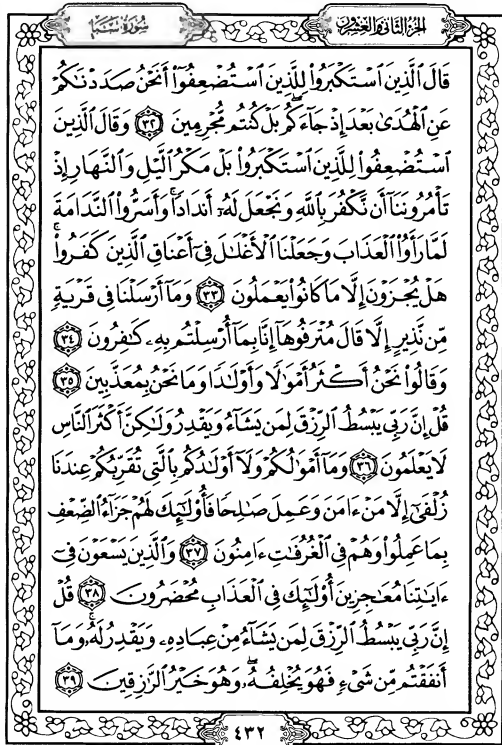 الجزء الثاني والعشرون
سورة سبأ
قَالَ ٱلَّذِينَ ٱسْتَكْبَرُواْ لِلَّذِينَ ٱسْتُضْعِفُوٓاْ أَنَحْنُ صَدَدْنَٰكُمْ
عَنِ ٱلْهُدَىٰ بَعْدَ إِذْ جَآءَكُمۖ بَلْ كُنتُم مُّجْرِمِينَ ٣٢ وَقَالَ ٱلَّذِينَ
ٱسْتُضْعِفُواْ لِلَّذِينَ ٱسْتَكْبَرُواْ بَلْ مَكْرُ ٱلَّيْلِ وَٱلنَّهَارِ إِذْ
تَأْمُرُونَنَآ أَن نَّكْفُرَ بِٱللَّهِ وَنَجْعَلَ لَهُۥٓ أَندَادًاۚ وَأَسَرُّواْ ٱلنَّدَامَةَ
لَمَّا رَأَوُاْ ٱلْعَذَابَ وَجَعَلْنَا ٱلْأَغْلَٰلَ فِىٓ أَعْنَاقِ ٱلَّذِينَ كَفَرُواْۚ
هَلْ يُجْزَوْنَ إِلَّا مَا كَانُواْ يَعْمَلُونَ ٣٣ وَمَآ أَرْسَلْنَا فِى قَرْيَةٍ
مِّن نَّذِيرٍ إِلَّا قَالَ مُتْرَفُوهَآ إِنَّا بِمَآ أُرْسِلْتُم بِهِۦ كَٰفِرُونَ ٣٤
وَقَالُواْ نَحْنُ أَكْثَرُ أَمْوَٰلًا وَأَوْلَٰدًا وَمَا نَحْنُ بِمُعَذَّبِينَ ٣٥
قُلْ إِنَّ رَبِّى يَبْسُطُ ٱلرِّزْقَ لِمَن يَشَآءُ وَيَقْدِرُ وَلَٰكِنَّ أَكْثَرَ ٱلنَّاسِ
لَا يَعْلَمُونَ ٣٦ وَمَآ أَمْوَٰلُكُمْ وَلَآ أَوْلَٰدُكُم بِٱلَّتِى تُقَرِّبُكُمْ عِندَنَا
زُلْفَىٰٓ إِلَّا مَنْ ءَامَنَ وَعَمِلَ صَٰلِحًا فَأُوْلَٰٓئِكَ لَهُمْ جَزَآءُ ٱلضِّعْفِ
بِمَا عَمِلُواْ وَهُمْ فِى ٱلْغُرُفَٰتِ ءَامِنُونَ ٣٧ وَٱلَّذِينَ يَسْعَوْنَ فِىٓ
ءَايَٰتِنَا مُعَٰجِزِينَ أُوْلَٰٓئِكَ فِى ٱلْعَذَابِ مُحْضَرُونَ ٣٨ قُلْ
إِنَّ رَبِّى يَبْسُطُ ٱلرِّزْقَ لِمَن يَشَآءُ مِنْ عِبَادِهِۦ وَيَقْدِرُ لَهُۥۚ وَمَآ
أَنفَقْتُم مِّن شَىْءٍ فَهُوَ يُخْلِفُهُۥۖ وَهُوَ خَيْرُ ٱلرَّٰزِقِينَ ٣٩
٤٣٢